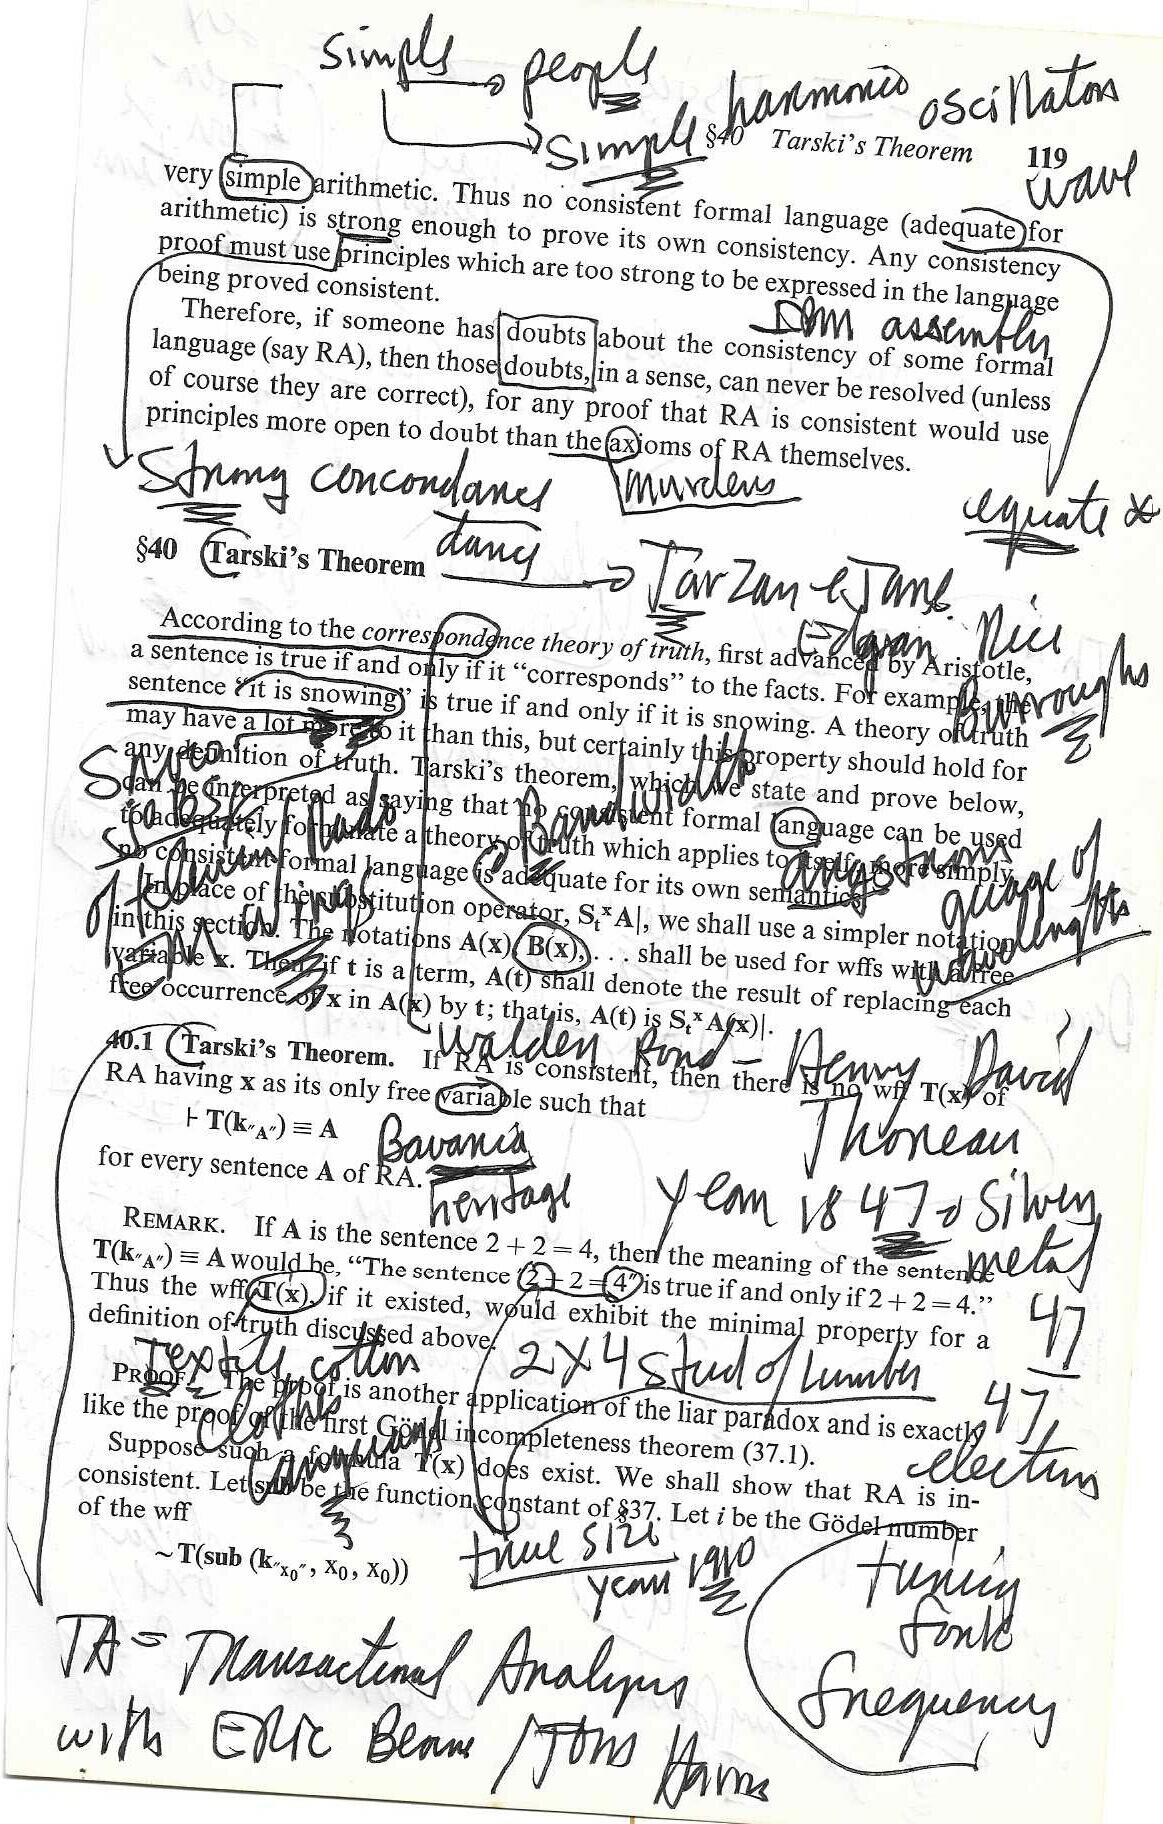 simple people
harmonic oscillators
simple
§40 Tarski's Theorem 119
wave
very simple arithmetic. Thus no consistent formal language (adequate for
arithmetic) is strong enough to prove its own consistency. Any consistency
proof must use principles which are too strong to be expressed in the language
being proved consistent.
assembly
Therefore, if someone has doubts about the consistency of some formal
language (say RA), then those doubts, in a sense, can never be resolved (unless
of course they are correct), for any proof that RA is consistent would use
principles more open to doubt than the axioms of RA themselves.
Strong concordance
murders
equate
dance
§40 Tarski's Theorem
Tarzan & Jane
Edgar Rice
Burroughs
According to the correspondence theory of truth, first advanced by Aristotle,
a sentence is true if and only if it “corresponds” to the facts. For example, the
sentence “it is snowing” is true if and only if it is snowing. A theory of truth
may have a lot more to it than this, but certainly this property should hold for
any definition of truth. Tarski's theorem, which we state and prove below,
can be interpreted as saying that no consistent formal language can be used
to adequately formulate a theory of truth which applies to itself; more simply,
no consistent formal language is adequate for its own semantics.
Bandwidth
angstroms
guage of
wavelengths
of
EM wings
In place of the substitution operator, Sₜˣ A|, we shall use a simpler notation
in this section. The notations A(x), B(x), . . . shall be used for wffs with a free
variable x. Then if t is a term, A(t) shall denote the result of replacing each
free occurrence of x in A(x) by t; that is, A(t) is Sₜˣ A(x)|.
Walden Pond – Henry David
Thoreau
40.1 Tarski's Theorem. If RA is consistent, then there is no wff T(x) of
RA having x as its only free variable such that
⊢ T(k″A″) ≡ A
Bavaria
heritage
for every sentence A of RA.
year 1847 silver
metal
47
47
electrons
REMARK. If A is the sentence 2 + 2 = 4, then the meaning of the sentence
T(k″A″) ≡ A would be, “The sentence ‘2 + 2 = 4’ is true if and only if 2 + 2 = 4.”
Thus the wff T(x), if it existed, would exhibit the minimal property for a
definition of truth discussed above.
Textile cotton
clothes
2x4 stud of lumber
PROOF. The proof is another application of the liar paradox and is exactly
like the proof of the first Gödel incompleteness theorem (37.1).
Suppose such a formula T(x) does exist. We shall show that RA is in-
consistent. Let sub be the function constant of §37. Let i be the Gödel number
of the wff
~ T(sub (k″x₀″, x₀, x₀))
true size
year 1910
tuning
fork
frequency
TA = Transactional Analysis
with Eric Berne / Tom Harris